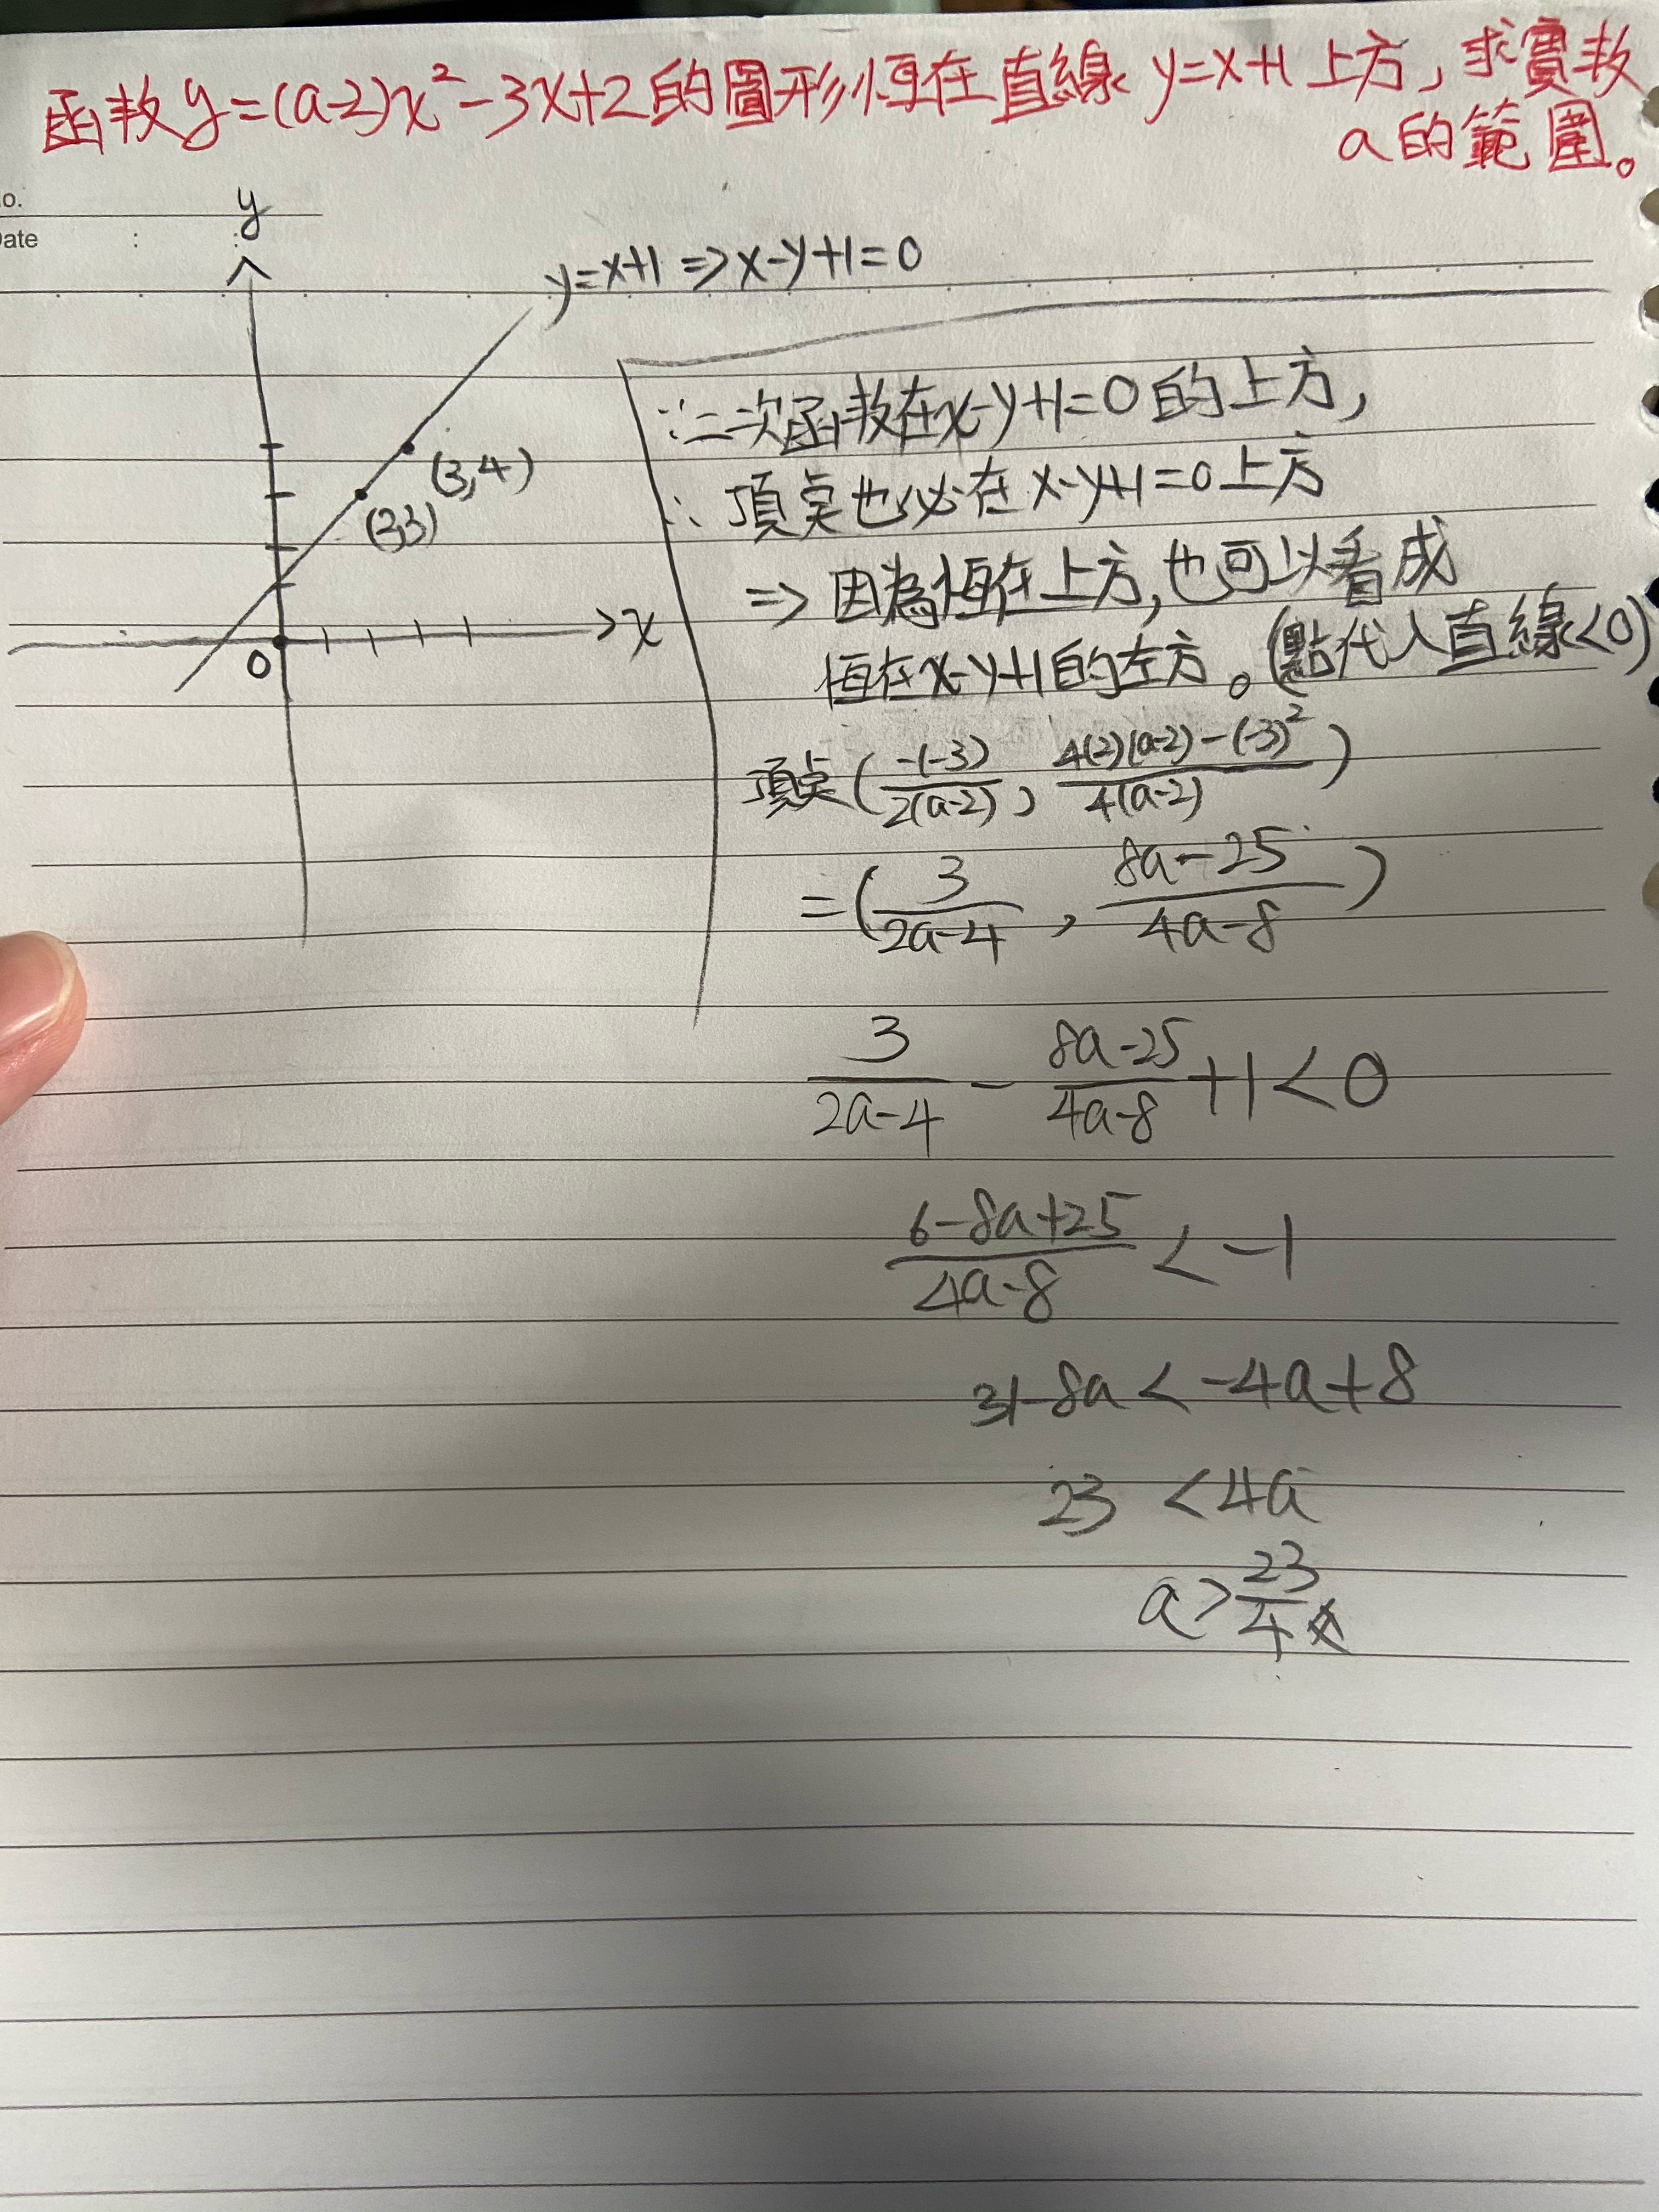 函數y=(a-2)x²-3x+2的圖形恆在直線y=x+1上方，求實數
a的範圍。
o.
Date : :
y
y=x+1 ⇒ x-y+1=0
(3,4)
(2,3)
x
0
∵二次函數在x-y+1=0的上方，
∴頂點也必在x-y+1=0上方
⇒ 因為恆在上方，也可以看成
恆在x-y+1的左方。(點代入直線<0)
頂點(-(-3)/2(a-2), 4(2)(a-2)-(-3)²/4(a-2))
=(3/2a-4, 8a-25/4a-8)
3/2a-4 - 8a-25/4a-8 +1<0
6-8a+25/4a-8 < -1
31-8a < -4a+8
23 < 4a
a > 23/4